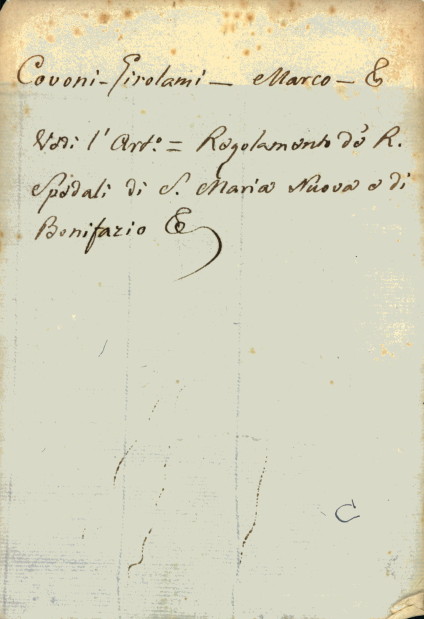 Covoni-Girolami — Marco — &
Vedi l'Art.º = Regolamento de' R.
Spedali di S. Maria Nuova e di
Bonifazio &
C